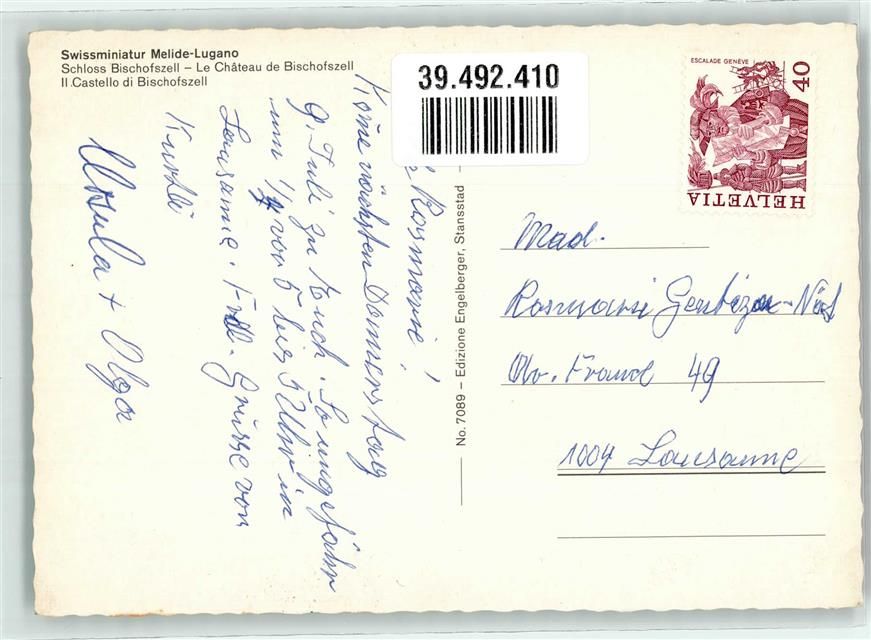 Swissminiatur Melide-Lugano
Schloss Bischofszell – Le Château de Bischofszell
Il Castello di Bischofszell
39.492.410
ESCALADE GENÈVE
40
HELVETIA
No. 7089 – Edizione Engelberger, Stansstad
Rosmarie!
Kome nächsten Donnerstag
9. Juli zu Euch. So ungefähr
um 1/4 vor 5 bis 5 Uhr in
Lausanne. Frdl. Grüsse von
Ursula + Olga
Mad.
Rosmarie
Av. France 49
1004 Lausanne